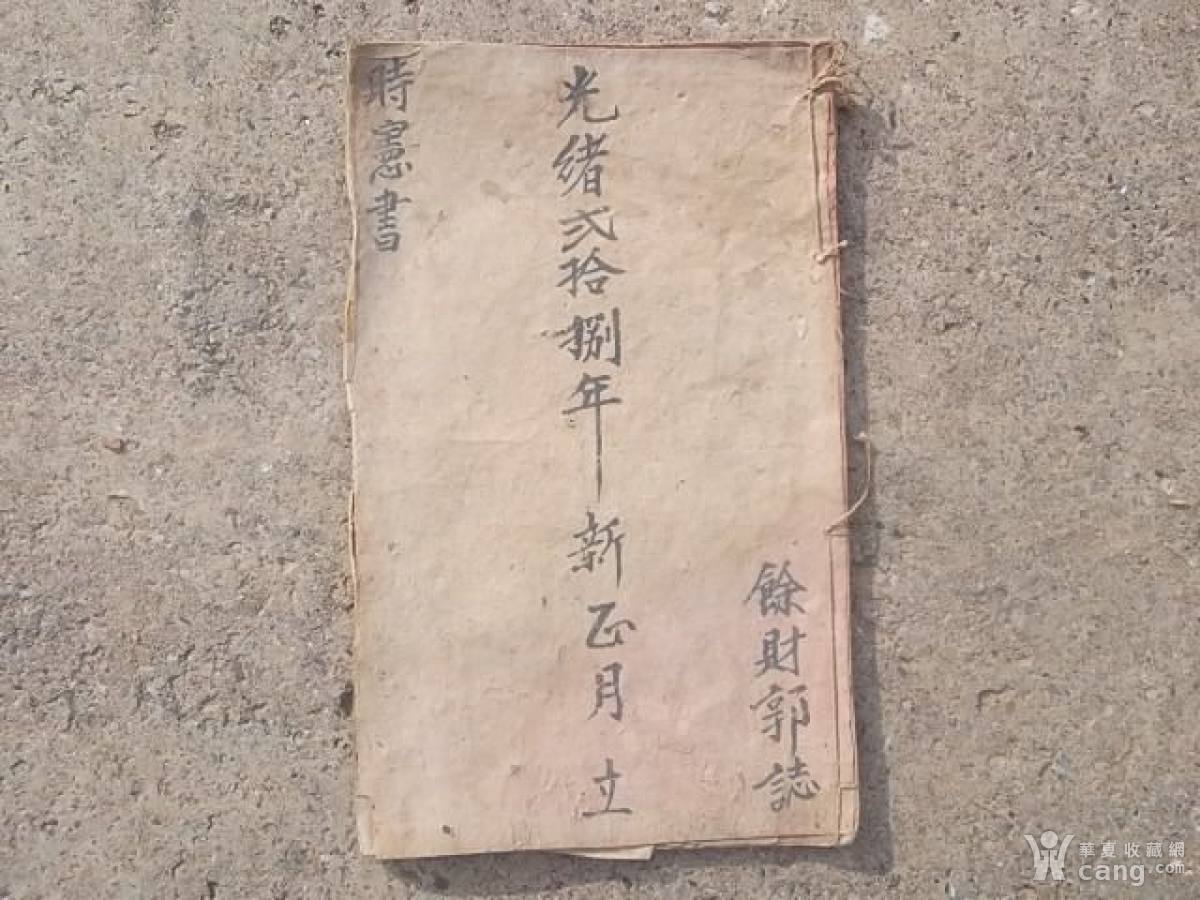 餘財郭誌
光緒弍拾捌年 新正月 立
時憲書
華夏收藏網
cang.com